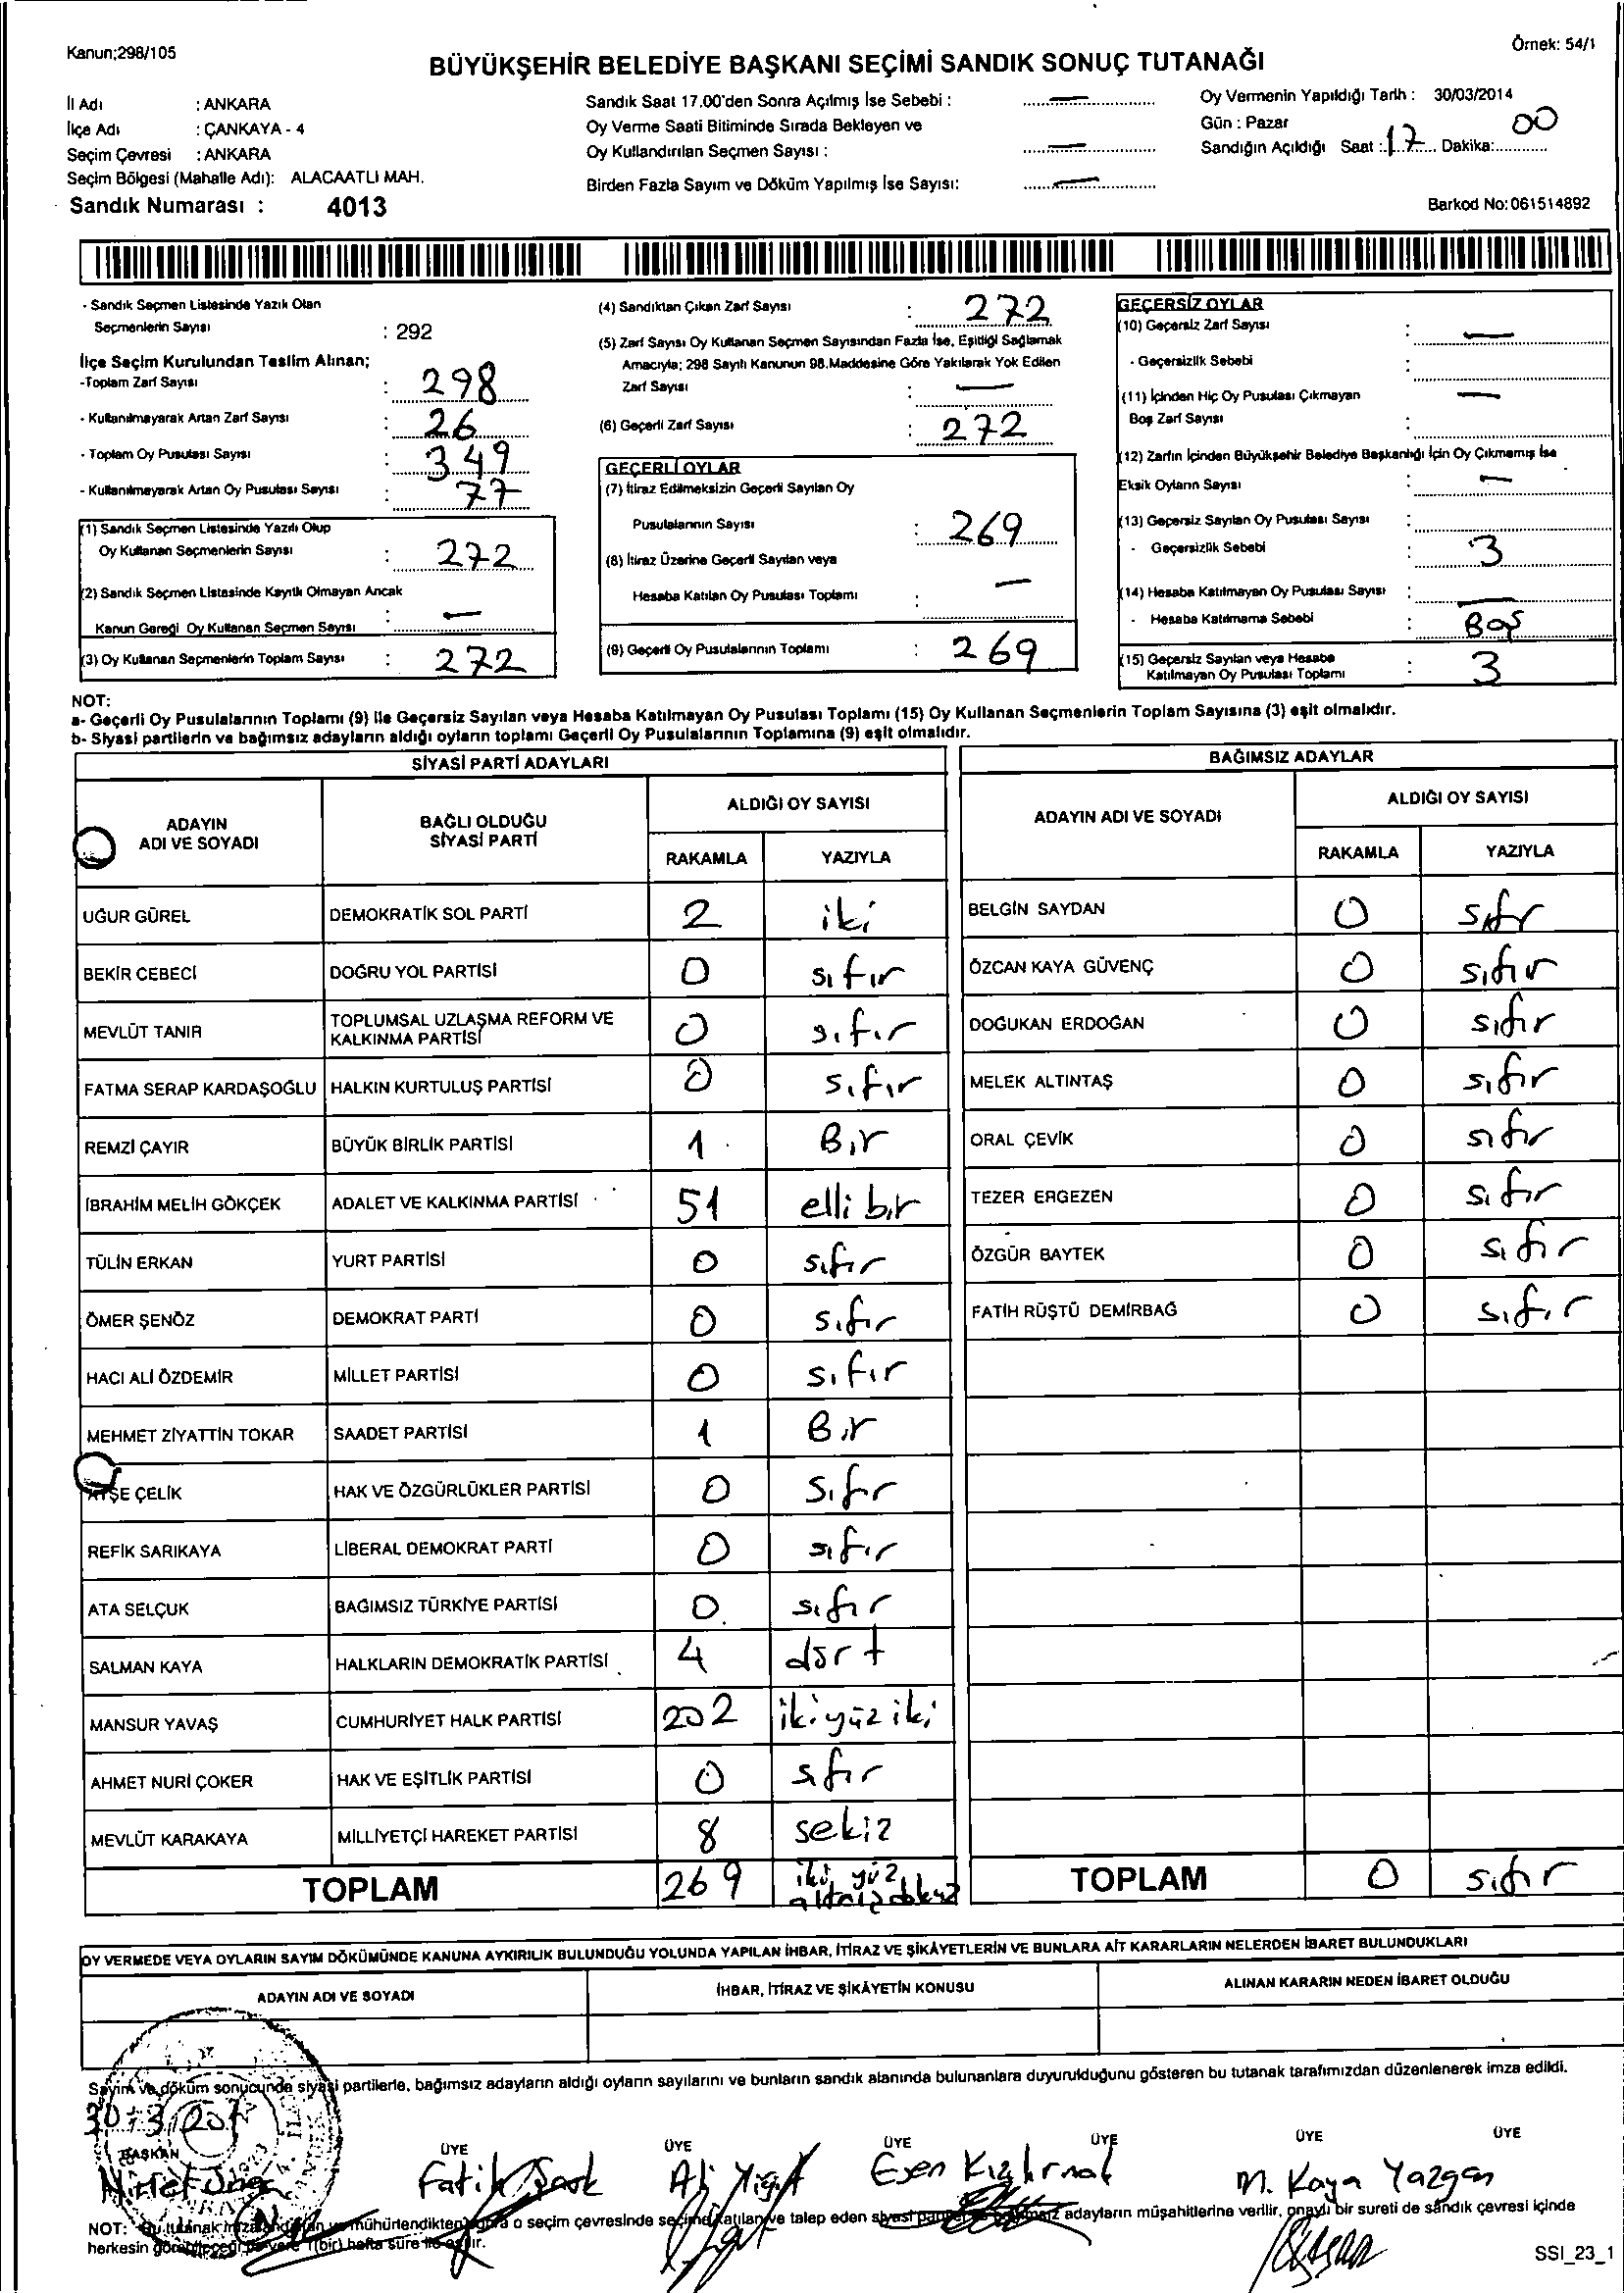 Kanun;298/105
Örnek: 54/1
BÜYÜKŞEHİR BELEDİYE BAŞKANI SEÇİMİ SANDIK SONUÇ TUTANAĞI
İl Adı : ANKARA
İlçe Adı : ÇANKAYA - 4
Seçim Çevresi : ANKARA
Seçim Bölgesi (Mahalle Adı): ALACAATLI MAH.
Sandık Numarası : 4013
Sandık Saat 17.00'den Sonra Açılmış İse Sebebi : —
Oy Verme Saati Bitiminde Sırada Bekleyen ve
Oy Kullandırılan Seçmen Sayısı : —
Birden Fazla Sayım ve Döküm Yapılmış İse Sayısı: —
Oy Vermenin Yapıldığı Tarih : 30/03/2014
Gün : Pazar
Sandığın Açıldığı Saat : 17 Dakika: 00
Barkod No:061514892
- Sandık Seçmen Listesinde Yazılı Olan
Seçmenlerin Sayısı : 292
İlçe Seçim Kurulundan Teslim Alınan;
-Toplam Zarf Sayısı : 298
- Kullanılmayarak Artan Zarf Sayısı : 26
- Toplam Oy Pusulası Sayısı : 349
- Kullanılmayarak Artan Oy Pusulası Sayısı : 77
(1) Sandık Seçmen Listesinde Yazılı Olup
Oy Kullanan Seçmenlerin Sayısı : 272
(2) Sandık Seçmen Listesinde Kayıtlı Olmayan Ancak
Kanun Gereği Oy Kullanan Seçmen Sayısı : —
(3) Oy Kullanan Seçmenlerin Toplam Sayısı : 272
(4) Sandıktan Çıkan Zarf Sayısı : 272
(5) Zarf Sayısı Oy Kullanan Seçmen Sayısından Fazla İse, Eşitliği Sağlamak
Amacıyla; 298 Sayılı Kanunun 98.Maddesine Göre Yakılarak Yok Edilen
Zarf Sayısı : —
(6) Geçerli Zarf Sayısı : 272
GEÇERLİ OYLAR
(7) İtiraz Edilmeksizin Geçerli Sayılan Oy
Pusulalarının Sayısı : 269
(8) İtiraz Üzerine Geçerli Sayılan veya
Hesaba Katılan Oy Pusulası Toplamı : —
(9) Geçerli Oy Pusulalarının Toplamı : 269
GEÇERSİZ OYLAR
(10) Geçersiz Zarf Sayısı : —
- Geçersizlik Sebebi :
(11) İçinden Hiç Oy Pusulası Çıkmayan —
Boş Zarf Sayısı :
(12) Zarfın İçinden Büyükşehir Belediye Başkanlığı İçin Oy Çıkmamış İse
Eksik Oyların Sayısı : —
(13) Geçersiz Sayılan Oy Pusulası Sayısı :
- Geçersizlik Sebebi : 3
(14) Hesaba Katılmayan Oy Pusulası Sayısı : —
- Hesaba Katılmama Sebebi : Boş
(15) Geçersiz Sayılan veya Hesaba
Katılmayan Oy Pusulası Toplamı : 3
NOT:
a- Geçerli Oy Pusulalarının Toplamı (9) ile Geçersiz Sayılan veya Hesaba Katılmayan Oy Pusulası Toplamı (15) Oy Kullanan Seçmenlerin Toplam Sayısına (3) eşit olmalıdır.
b- Siyasi partilerin ve bağımsız adayların aldığı oyların toplamı Geçerli Oy Pusulalarının Toplamına (9) eşit olmalıdır.
SİYASİ PARTİ ADAYLARI
ADAYIN ADI VE SOYADI BAĞLI OLDUĞU SİYASİ PARTİ ALDIĞI OY SAYISI
RAKAMLA YAZIYLA
UĞUR GÜREL DEMOKRATİK SOL PARTİ 2 iki
BEKİR CEBECİ DOĞRU YOL PARTİSİ 0 sıfır
MEVLÜT TANIR TOPLUMSAL UZLAŞMA REFORM VE KALKINMA PARTİSİ 0 sıfır
FATMA SERAP KARDAŞOĞLU HALKIN KURTULUŞ PARTİSİ 0 sıfır
REMZİ ÇAYIR BÜYÜK BİRLİK PARTİSİ 1 Bir
İBRAHİM MELİH GÖKÇEK ADALET VE KALKINMA PARTİSİ 51 elli bir
TÜLİN ERKAN YURT PARTİSİ 0 sıfır
ÖMER ŞENÖZ DEMOKRAT PARTİ 0 sıfır
HACI ALİ ÖZDEMİR MİLLET PARTİSİ 0 sıfır
MEHMET ZİYATTİN TOKAR SAADET PARTİSİ 1 Bir
AYŞE ÇELİK HAK VE ÖZGÜRLÜKLER PARTİSİ 0 sıfır
REFİK SARIKAYA LİBERAL DEMOKRAT PARTİ 0 sıfır
ATA SELÇUK BAĞIMSIZ TÜRKİYE PARTİSİ 0 sıfır
SALMAN KAYA HALKLARIN DEMOKRATİK PARTİSİ 4 dört
MANSUR YAVAŞ CUMHURİYET HALK PARTİSİ 202 ikiyüz iki
AHMET NURİ ÇOKER HAK VE EŞİTLİK PARTİSİ 0 sıfır
MEVLÜT KARAKAYA MİLLİYETÇİ HAREKET PARTİSİ 8 sekiz
TOPLAM 269 iki yüz altmış dokuz
BAĞIMSIZ ADAYLAR
ADAYIN ADI VE SOYADI ALDIĞI OY SAYISI
RAKAMLA YAZIYLA
BELGİN SAYDAN 0 sıfır
ÖZCAN KAYA GÜVENÇ 0 sıfır
DOĞUKAN ERDOĞAN 0 sıfır
MELEK ALTINTAŞ 0 sıfır
ORAL ÇEVİK 0 sıfır
TEZER ERGEZEN 0 sıfır
ÖZGÜR BAYTEK 0 sıfır
FATİH RÜŞTÜ DEMİRBAĞ 0 sıfır
TOPLAM 0 sıfır
OY VERMEDE VEYA OYLARIN SAYIM DÖKÜMÜNDE KANUNA AYKIRILIK BULUNDUĞU YOLUNDA YAPILAN İHBAR, İTİRAZ VE ŞİKÂYETLERİN VE BUNLARA AİT KARARLARIN NELERDEN İBARET BULUNDUKLARI
ADAYIN ADI VE SOYADI İHBAR, İTİRAZ VE ŞİKÂYETİN KONUSU ALINAN KARARIN NEDEN İBARET OLDUĞU
Sayım ve döküm sonucunda siyasi partilerle, bağımsız adayların aldığı oyların sayılarını ve bunların sandık alanında bulunanlara duyurulduğunu gösteren bu tutanak tarafımızdan düzenlenerek imza edildi.
BAŞKAN ÜYE ÜYE ÜYE ÜYE ÜYE ÜYE
Fatih Ali Yiğit Esen Kızılırmak M. Kaya Yazgan
NOT: Bu tutanak imzalandıktan ve mühürlendikten sonra o seçim çevresinde seçime katılan ve talep eden siyasi adayların müşahitlerine verilir, onaylı bir sureti de sandık çevresi içinde
herkesin görebileceği bir yere 1(bir) hafta süre ile asılır.
SSI_23_1